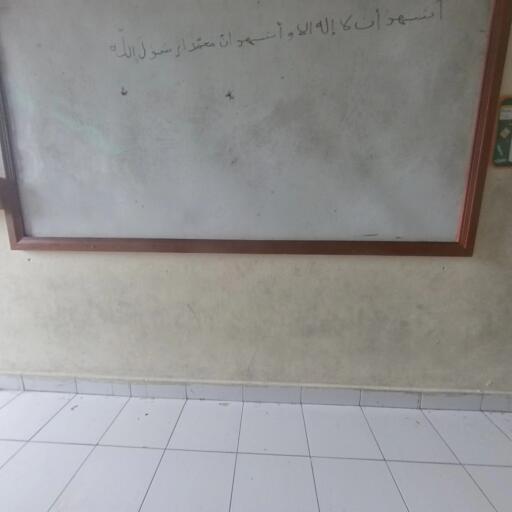 أشهد أن لا إله الا و أشهد انّ محمّدا رسول اللّه